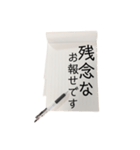 残念な
お報せです